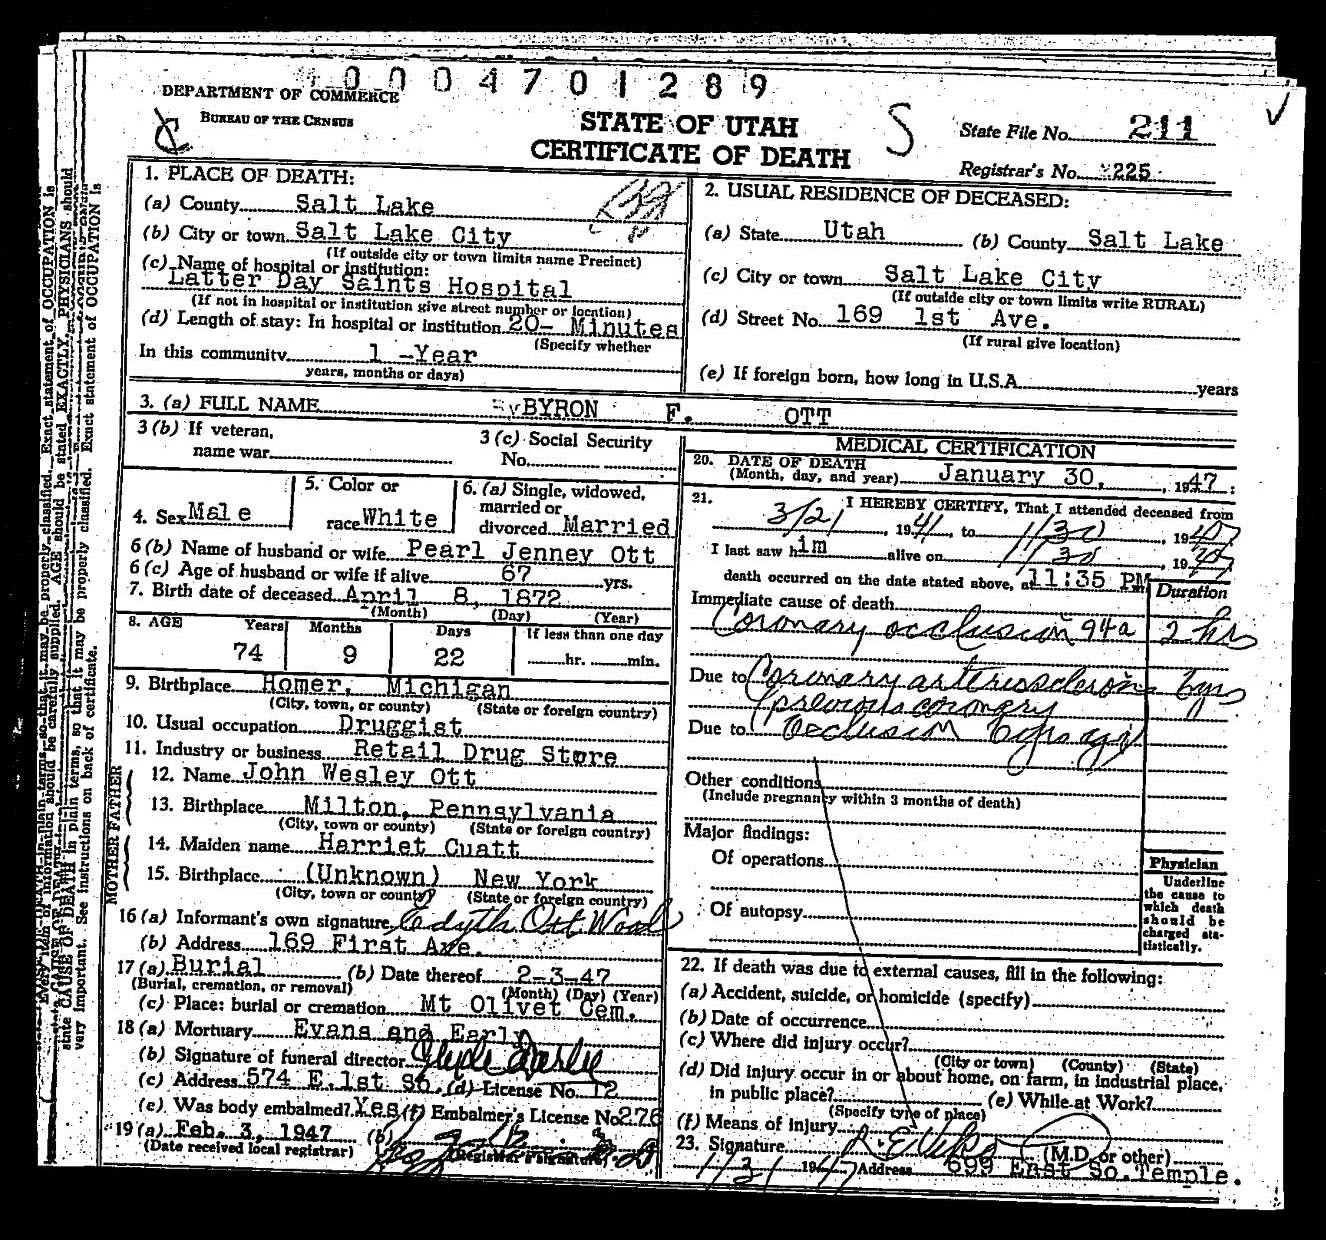 0004701289
DEPARTMENT OF COMMERCE
BUREAU OF THE CENSUS
STATE OF UTAH
CERTIFICATE OF DEATH
S
State File No. 211
Registrar's No. 225
1. PLACE OF DEATH:
(a) County Salt Lake
(b) City or town Salt Lake City
(If outside city or town limits name Precinct)
(c) Name of hospital or institution:
Latter Day Saints Hospital
(If not in hospital or institution give street number or location)
(d) Length of stay: In hospital or institution 20- Minutes
(Specify whether
In this community 1 -Year
years, months or days)
2. USUAL RESIDENCE OF DECEASED:
(a) State Utah (b) County Salt Lake
(c) City or town Salt Lake City
(If outside city or town limits write RURAL)
(d) Street No. 169 1st Ave.
(If rural give location)
(e) If foreign born, how long in U.S.A. years
3. (a) FULL NAME BYRON F. OTT
3(b) If veteran,
name war
3(c) Social Security
No.
4. Sex Male
5. Color or
race White
6. (a) Single, widowed,
married or
divorced Married
6(b) Name of husband or wife Pearl Jenney Ott
6(c) Age of husband or wife if alive 67 yrs.
7. Birth date of deceased April 8, 1872
(Month) (Day) (Year)
8. AGE Years Months Days If less than one day
74 9 22 hr. min.
9. Birthplace Homer, Michigan
(City, town, or county) (State or foreign country)
10. Usual occupation Druggist
11. Industry or business Retail Drug Store
FATHER
12. Name John Wesley Ott
13. Birthplace Milton, Pennsylvania
(City, town or county) (State or foreign country)
MOTHER
14. Maiden name Harriet Cuatt
15. Birthplace (Unknown) New York
(City, town or county) (State or foreign country)
16(a) Informant's own signature Edyth Ott Wood
(b) Address 169 First Ave.
17(a) Burial (b) Date thereof 2-3-47
(Burial, cremation, or removal) (Month) (Day) (Year)
(c) Place: burial or cremation Mt Olivet Cem.
18(a) Mortuary Evans and Early
(b) Signature of funeral director
(c) Address 574 E.1st So. (d) License No. 12
(e) Was body embalmed? Yes (f) Embalmer's License No 276
19(a) Feb. 3, 1947 (b)
(Date received local registrar) (Registrar's signature)
MEDICAL CERTIFICATION
20. DATE OF DEATH
(Month, day, and year) January 30, 1947:
21. I HEREBY CERTIFY, That I attended deceased from
3/21, 1941 to 1/30, 1947
I last saw him alive on 1/30, 1947
death occurred on the date stated above, at 11:35 PM
Duration
Immediate cause of death
Coronary occlusion 94a 2 hrs
Due to Coronary arteriosclerosis 6 yrs
(previous coronary
Due to Occlusion 6 yrs ago)
Other conditions
(Include pregnancy within 3 months of death)
Major findings:
Of operations
Of autopsy
Physician
Underline
the cause to
which death
should be
charged sta-
tistically.
22. If death was due to external causes, fill in the following:
(a) Accident, suicide, or homicide (specify)
(b) Date of occurrence
(c) Where did injury occur?
(City or town) (County) (State)
(d) Did injury occur in or about home, on farm, in industrial place,
in public place? (e) While at Work?
(Specify type of place)
(f) Means of injury
23. Signature (M.D. or other)
1/31 1947 Address 699 East So. Temple.
state CAUSE OF DEATH in plain terms, so that it may be properly classified. Exact statement of OCCUPATION is
very important. See instructions on back of certificate.